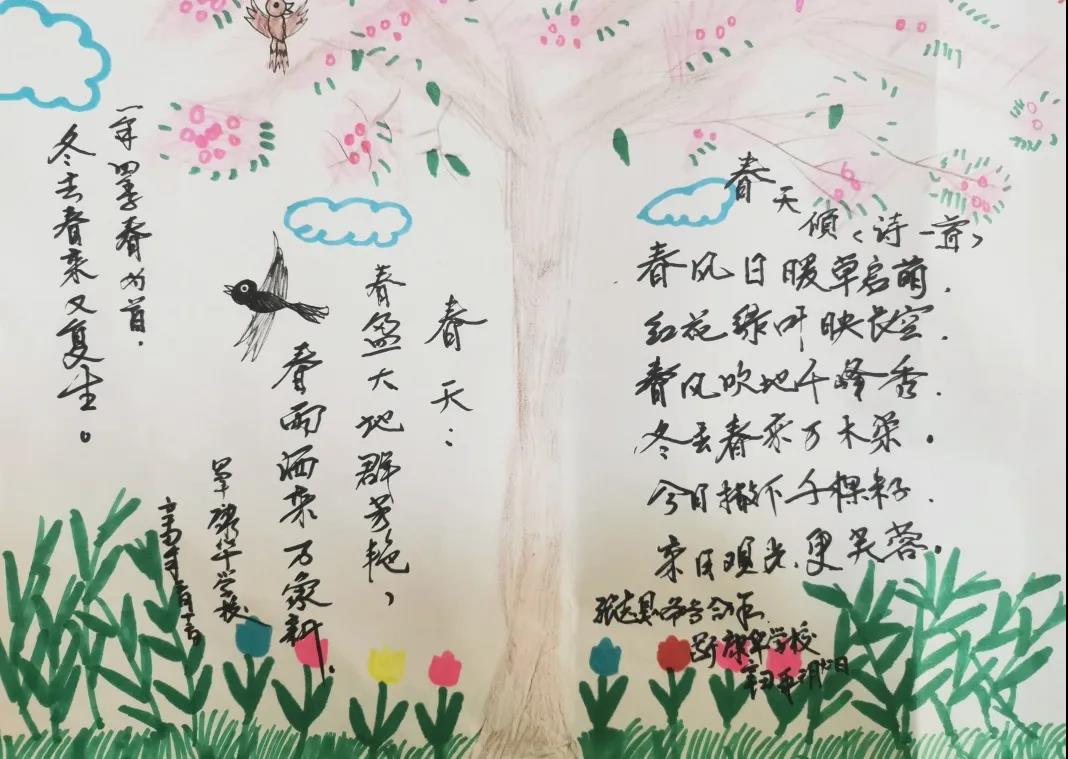 春天
〈诗一首〉
春风日暖草启萌.
红花绿叶映长空.
春风吹地千峰秀.
冬去春来万木荣.
今日撒下千棵籽.
来日观光更芙蓉.
康华学校
春天：
春盈大地群芳艳，
春雨洒来万象新.
一年四季春为首.
冬去春来又复生。
康华学校